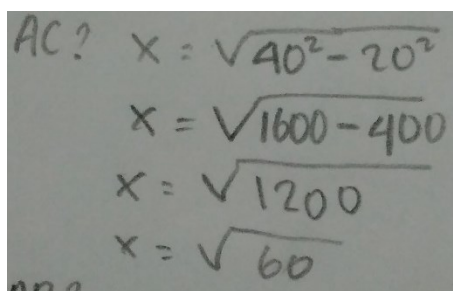 AC? x = √40² - 20²
x = √1600 - 400
x = √1200
x = √60